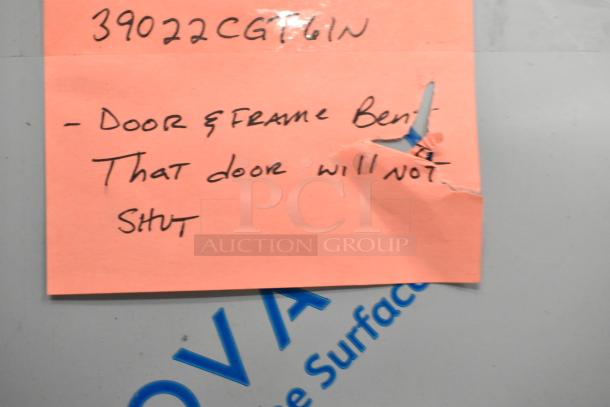 39022CGT61N
- DOOR & FRAME Bent
THAT door will NOT
SHUT
PCI
AUCTION GROUP
OVA
e Surface